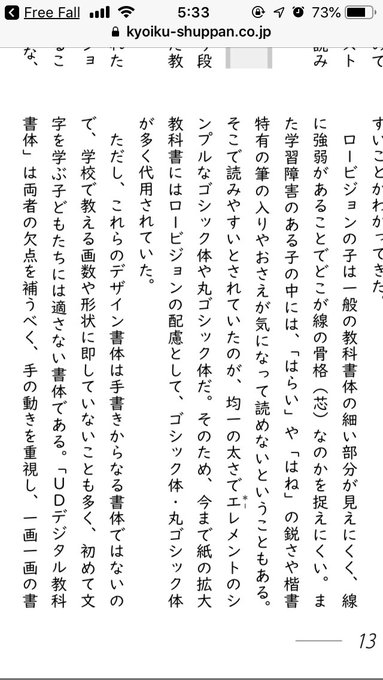 Free Fall
5:33
73%
kyoiku-shuppan.co.jp
スト
読み
り段
た教
れた
ショ
るこ
な、
すいことがわかってきた。
ロービジョンの子は一般の教科書体の細い部分が見えにくく、線
に強弱があることでどこが線の骨格（芯）なのかを捉えにくい。ま
た学習障害のある子の中には、「はらい」や「はね」の鋭さや楷書
特有の筆の入りやおさえが気になって読めないということもある。
そこで読みやすいとされていたのが、均一の太さでエレメント＊1のシ
ンプルなゴシック体や丸ゴシック体だ。そのため、今まで紙の拡大
教科書にはロービジョンの配慮として、ゴシック体・丸ゴシック体
が多く代用されていた。
ただし、これらのデザイン書体は手書きからなる書体ではないの
で、学校で教える画数や形状に即していないことも多く、初めて文
字を学ぶ子どもたちには適さない書体である。「ＵＤデジタル教科
書体」は両者の欠点を補うべく、手の動きを重視し、一画一画の書
13